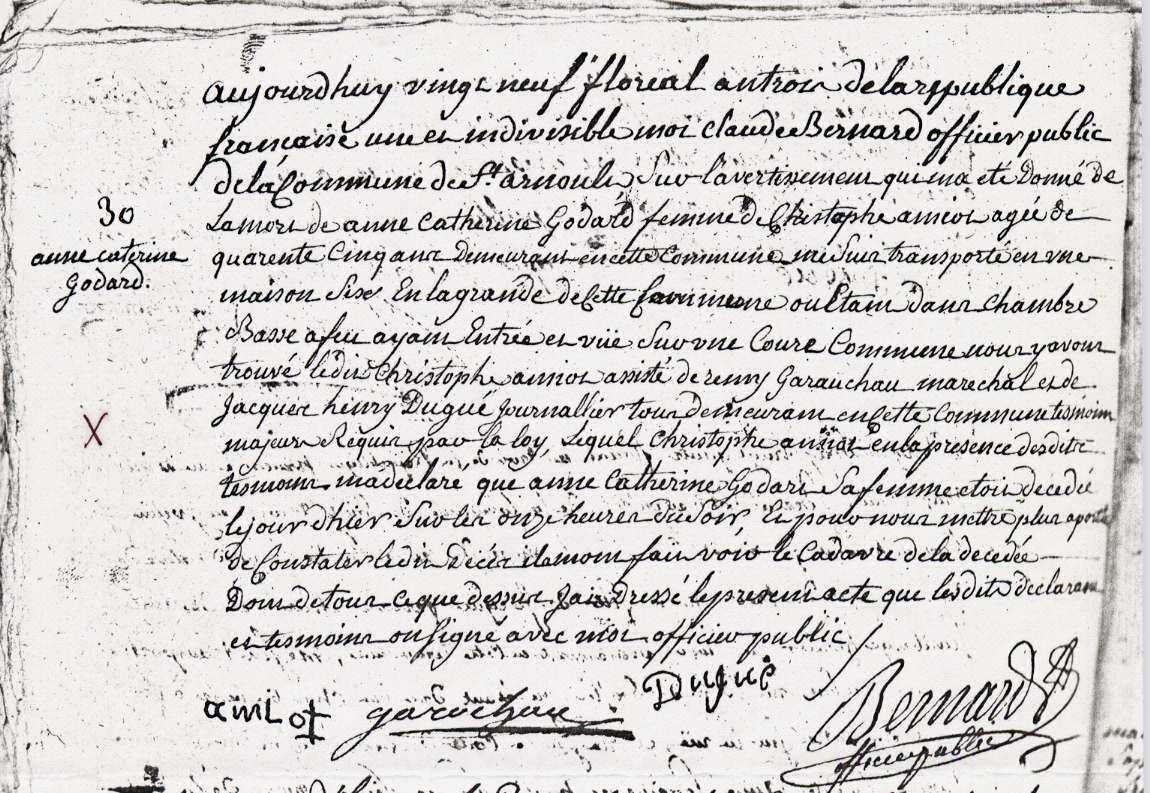 aujourdhuy vingt neuf floreal antrois de la republique
francaise une et indivisible moi claude Bernard officier public
de la Commune de St. arnoult Sur l'avertissement qui ma eté Donné de
La mort de anne Catherine Godard femme de Christophe amiot agée de
quarente Cinq ans Demeurant en cette Commune me suis transporté en une
maison Sise En la grande de Cette Commune ou Etant dans Chambre
Basse a feu ayant Entrée et vüe Sur une Cour Commune nous y avons
trouvé ledit Christophe amiot assité de remy Garauchau marechal et de
Jacques henry Dugué Journallier tous demeurant en Cette Commune tesmoins
majeurs Requis par la loy Lequel Christophe amiot En la presence desdits
tesmoins ma declaré que anne Catherine Godart Sa femme etoit decedée
le jour dhier Sur les onze heures du Soir, Et pour nous mettre plus aporté
de Constater ledit Décès ils mont fait voir le Cadavre de la decedée
Dont detout ce que dessus Jai Dressé le present acte que lesdits declarant
et tesmoins on signé avec moi officier public
30
anne caterine
Godard.
X
amiot
garochau
Dugué
Bernard
officier public